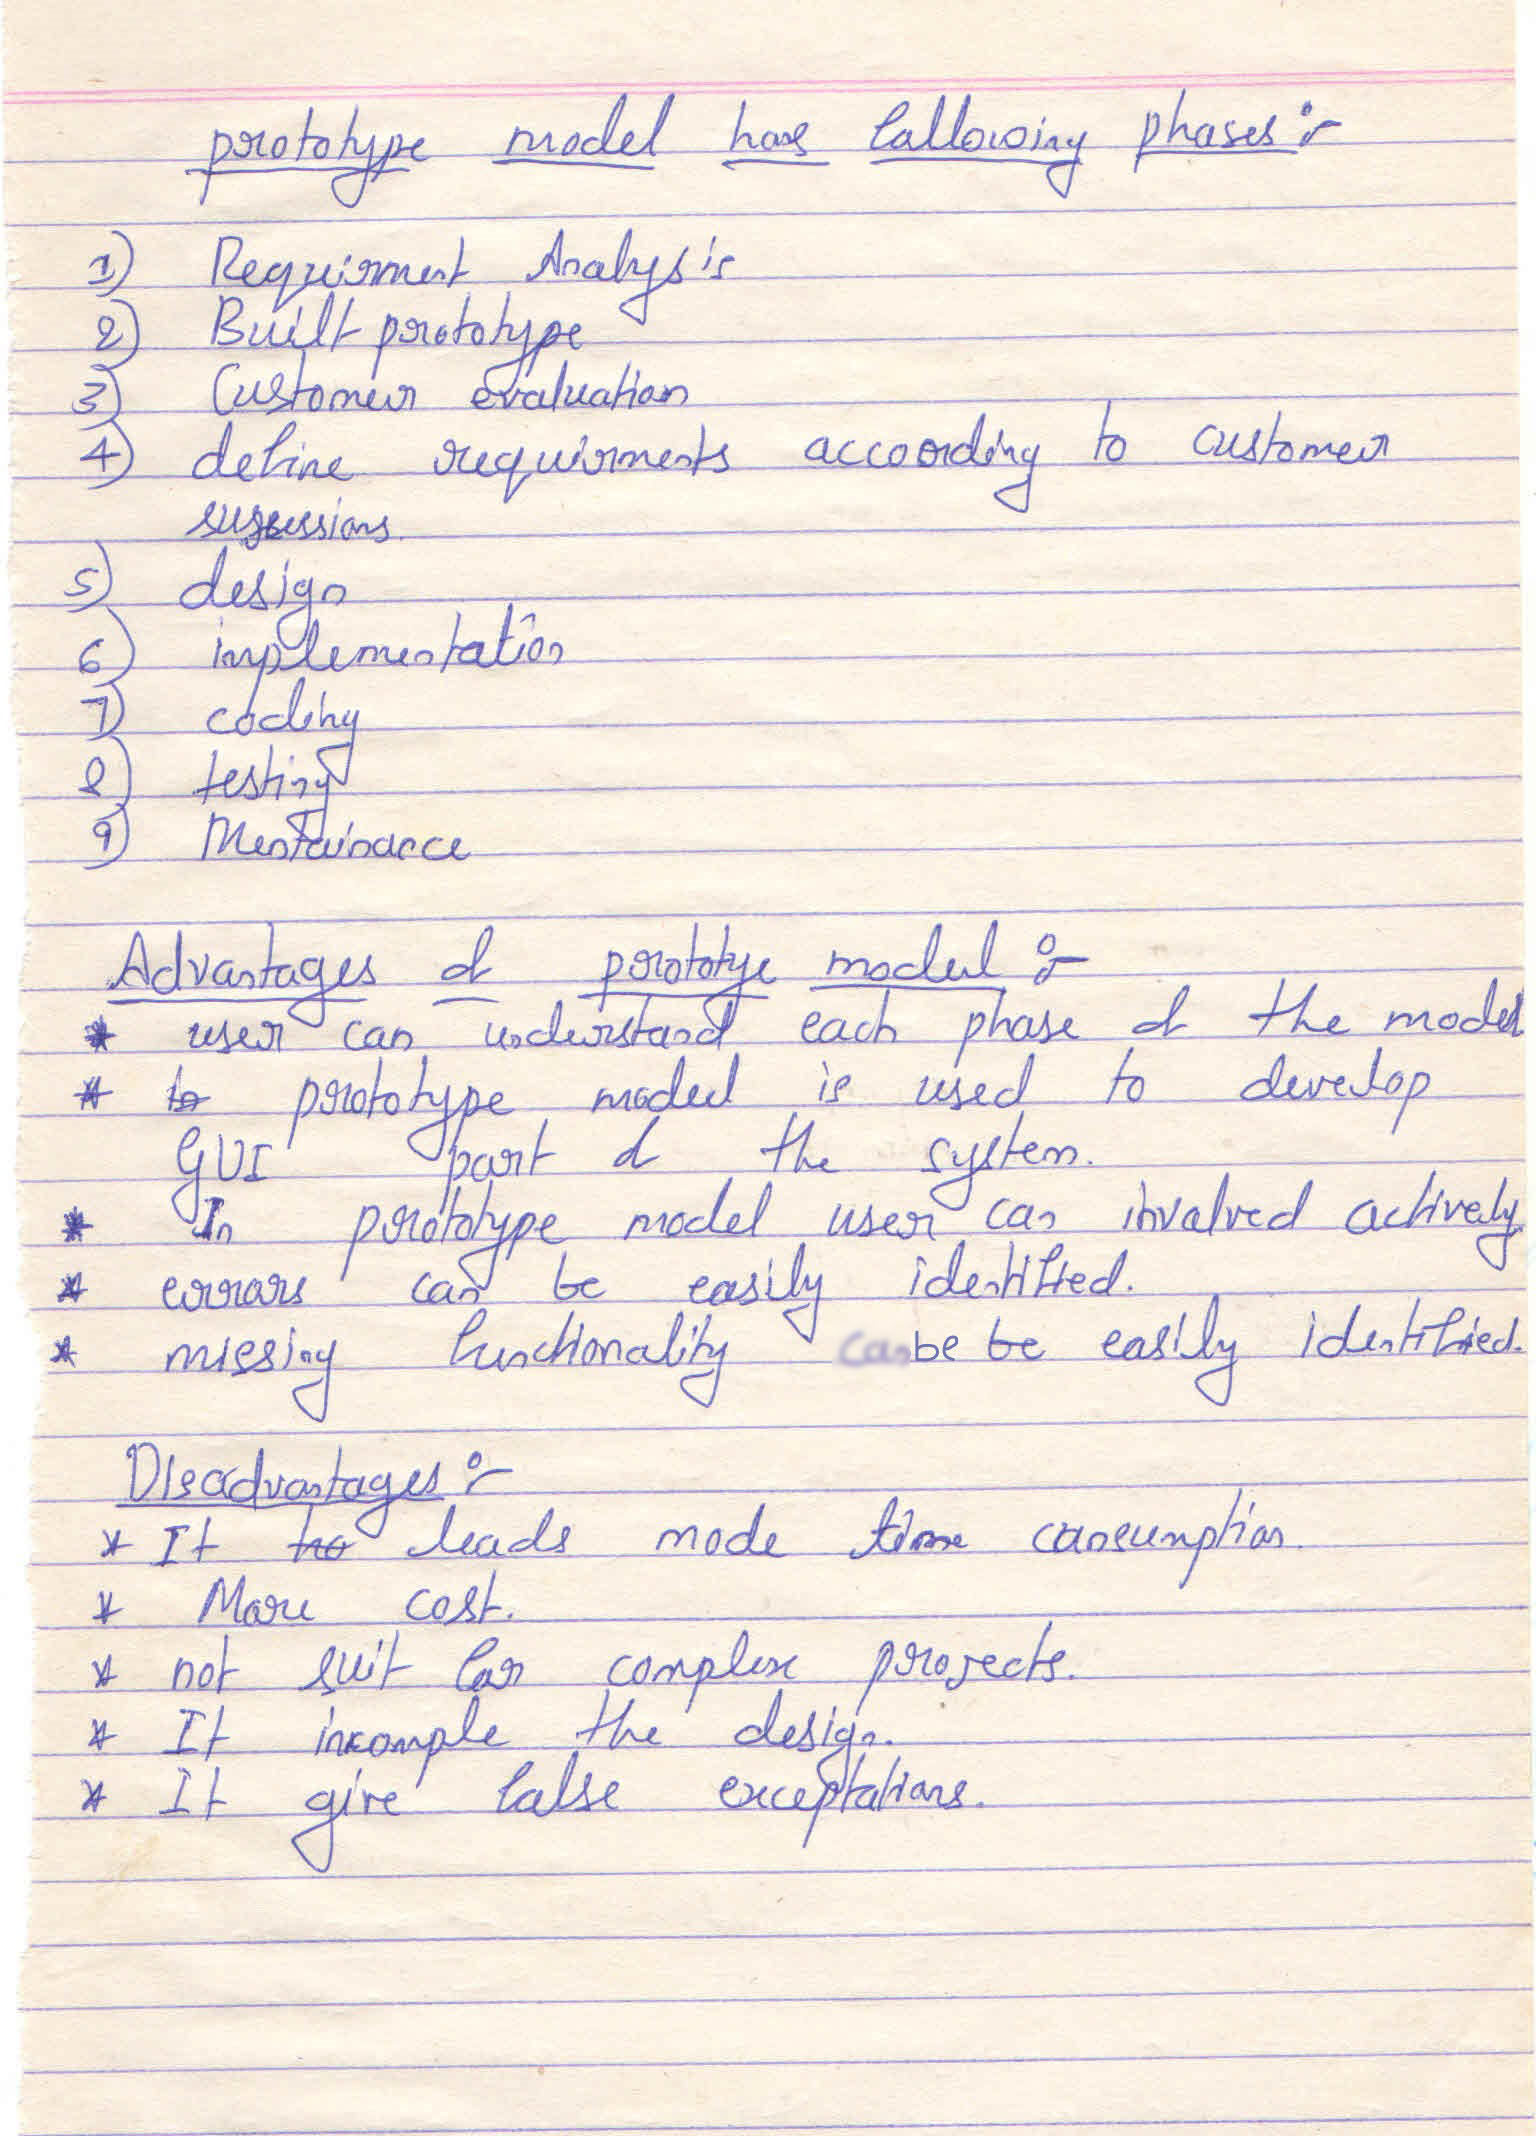 prototype model has following phases :-
1) Requirment Analysis
2) Built prototype
3) Customer evaluation
4) define requirments accoording to customer
suggessions.
5) design
6) implementation
7) coding
8) testing
9) Mentainance
Advantages of prototye model :-
* user can understand each phase of the model
* prototype model is used to develop
GUI part of the system.
* In prototype model user can invalved actively
* errors can be easily identified.
* missing functionality be be easily identified.
Disadvantages :-
* It leads mode time consumption.
* More cost.
* not suit for complex projects.
* It incomple the design.
* It give false exceptations.